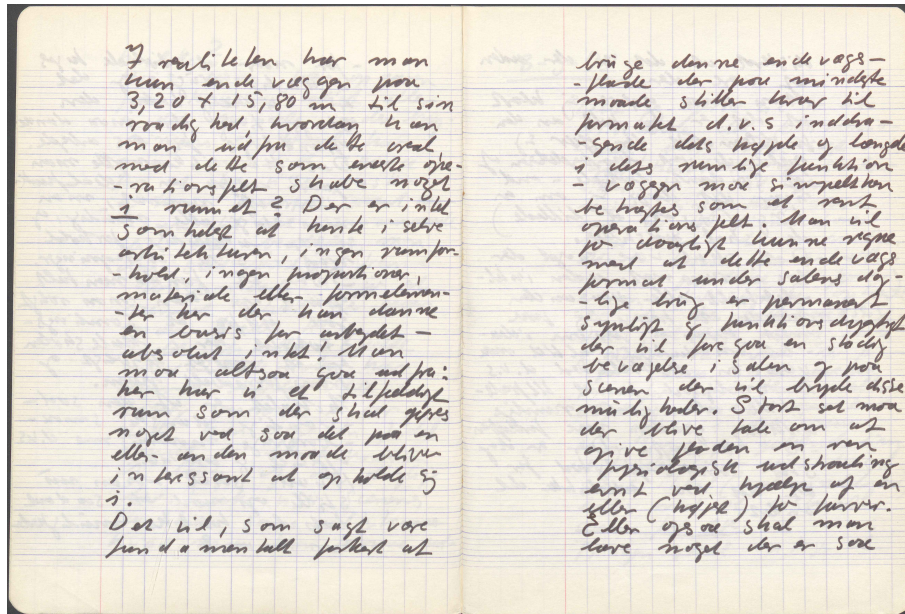 I realiteten har man
kun endevæggen paa
3,20 x 15,80 m til sin
raadighed, hvordan kan
man udfra dette areal,
med dette som eneste ope-
-rationsfelt skabe noget
i rummet? Der er intet
somhelst at hente i selve
arkitekturen, ingen rumfor-
-hold, ingen proportioner,
materiale eller formelemen-
-ter her der kan danne
en basis for arbejdet -
absolut intet! Man
maa altsaa gaa ud fra:
her har vi et tilfældigt
rum som der skal gøres
noget ved saa det paa en
eller anden maade bliver
interessant at opholde sig
i.
Det vil, som sagt være
fundamentalt forkert at
bruge denne endevægs-
-flade der paa mindste
maade stiller krav til
formatet d.v.s inddra-
-gende dets højde og længde
i dets rumlige funktion
- væggen maa simpelthen
betragtes som et rent
operationsfelt. Man vil
jo daarligt kunne regne
med at dette endevægs
format under salens dag-
-lige brug er permanent
synligt og funktionsdygtigt
der vil foregaa en stadig
bevægelse i salen og paa
scenen der vil bryde disse
muligheder. Stort set maa
der blive tale om at
give fladen en ren
fysiologisk udstraaling
evt ved hjælp af en
eller (højst) to farver.
Eller ogsaa skal man
lave noget der er saa